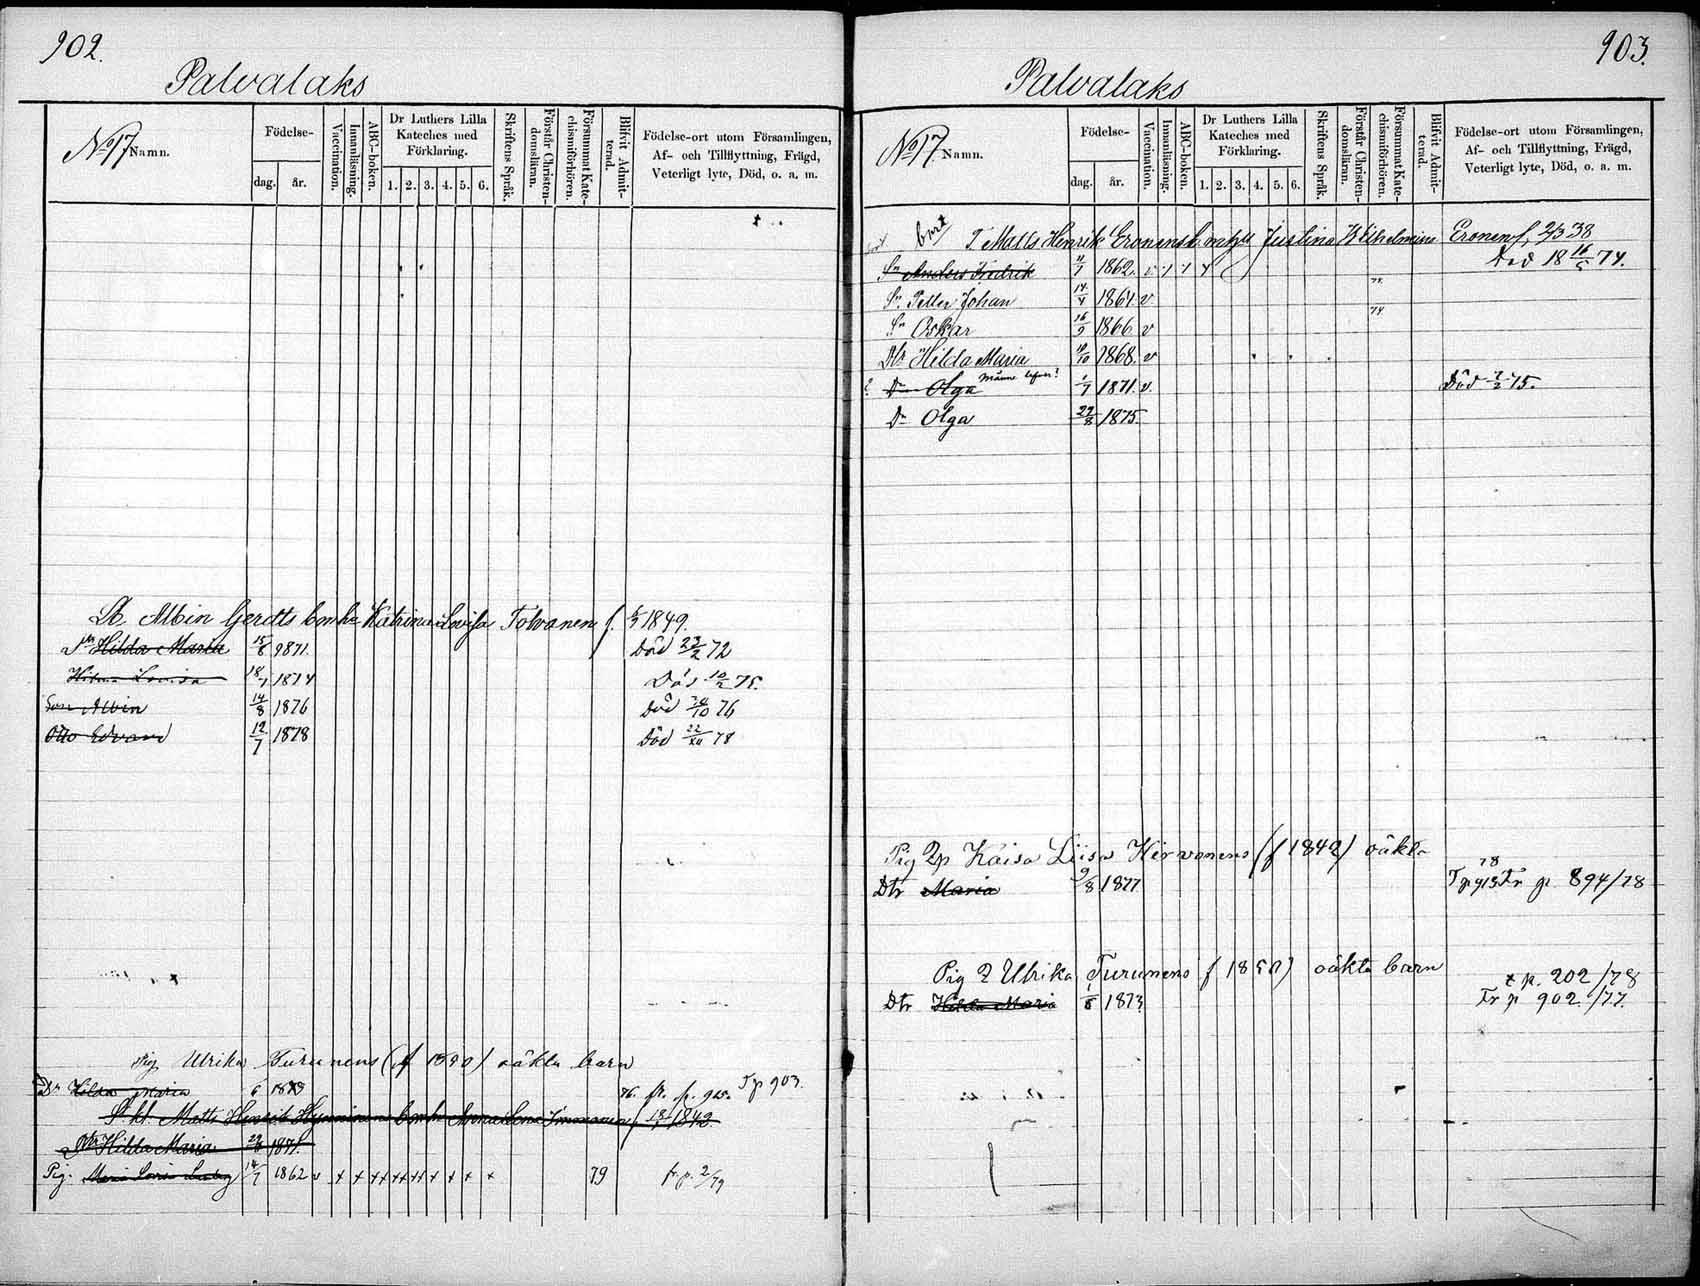 902.
Palvalaks
No 17 Namn.
Födelse-
dag.
år.
Vaccination.
Innanläsning.
ABC-boken.
Dr Luthers Lilla
Kateches med
Förklaring.
1. 2. 3. 4. 5. 6.
Skriftens Språk.
Förstår Christen-
domsläran.
Försummat Kate-
chismiförhören.
Blifvit Admit-
terad.
Födelse-ort utom Församlingen,
Af- och Tillflyttning, Frägd,
Veterligt lyte, Död, o. a. m.
Albin Gerdts Katrina Lovisa Tolvanen f. 1849.
Hilda Maria 15/6 1871. Död 23/2 72
Lovisa 18/1 1874 10/2 75.
Son Albin 14/8 1876 Död 20/10 76
Otto Edvard 12/7 1878 Död 22/XII 78
Pig Ulrika Turunens (f 1850) oäkta barn
Dr Hilda Maria 76. fr. p. 925. T p 903.
Matts Henrik 1849.
Dtr Hilda Maria 1871.
Pig. Maria Lovisa 14/7 1862 v + + ++ ++ ++ + + + + 79 fr p. 2/79
903.
Palvalaks
No 17 Namn.
Födelse-
dag.
år.
Vaccination.
Innanläsning.
ABC-boken.
Dr Luthers Lilla
Kateches med
Förklaring.
1. 2. 3. 4. 5. 6.
Skriftens Språk.
Förstår Christen-
domsläran.
Försummat Kate-
chismiförhören.
Blifvit Admit-
terad.
Födelse-ort utom Församlingen,
Af- och Tillflyttning, Frägd,
Veterligt lyte, Död, o. a. m.
bort T Matts Henrik Eronens Justina Wilhelmina Eronen f. 2/3 38
Sn Anders Fredrik 11/1 1862. v Död 18 16/5 74.
Sn. Petter Johan 14/4 1864. v
Sn Oskar 16/9 1866. v
Dtr Hilda Maria 10/10 1868. v
Dr Olga Månne lefver? 1/7 1871. v. Död 7/2 75.
Dr Olga 22/8 1875.
Pig Kaisa Liisa Hirvonens (f 1842) oäkta
Dtr Maria 9/8 1877 78 T p 913 Fr p. 894/78
Pig Ulrika Turunens f 1850) oäkta barn
t p. 202/78
Dtr Hilda Maria 1/6 1873 Fr p 902. /77.